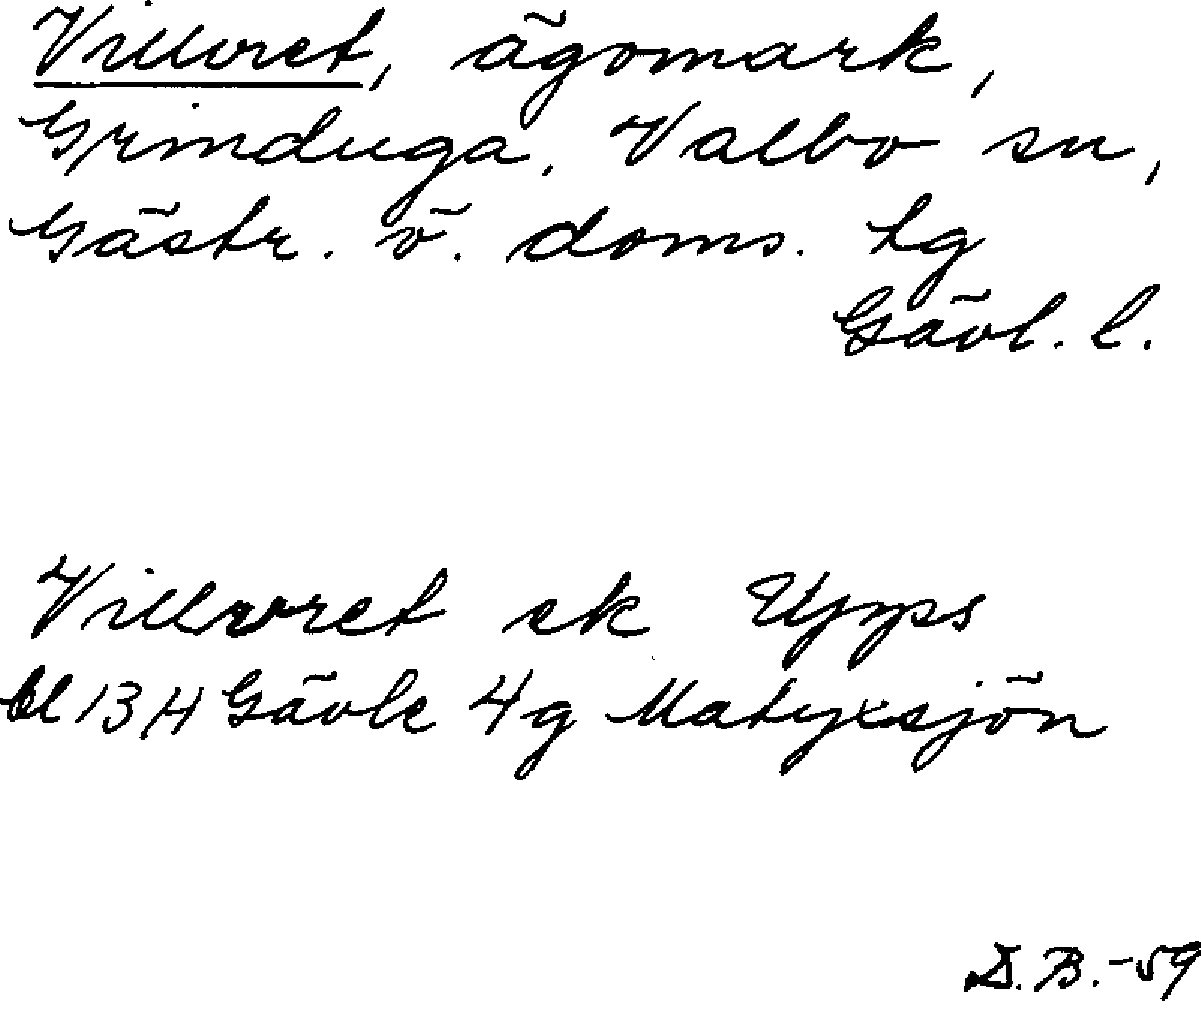 Villvret, ägomark,
Grinduga, Valbo sn,
Gästr. ö. doms. tg
Gävl. l.
Villvret ek Upps
bl 13H Gävle 4g Matyxsjön
D.B.-59